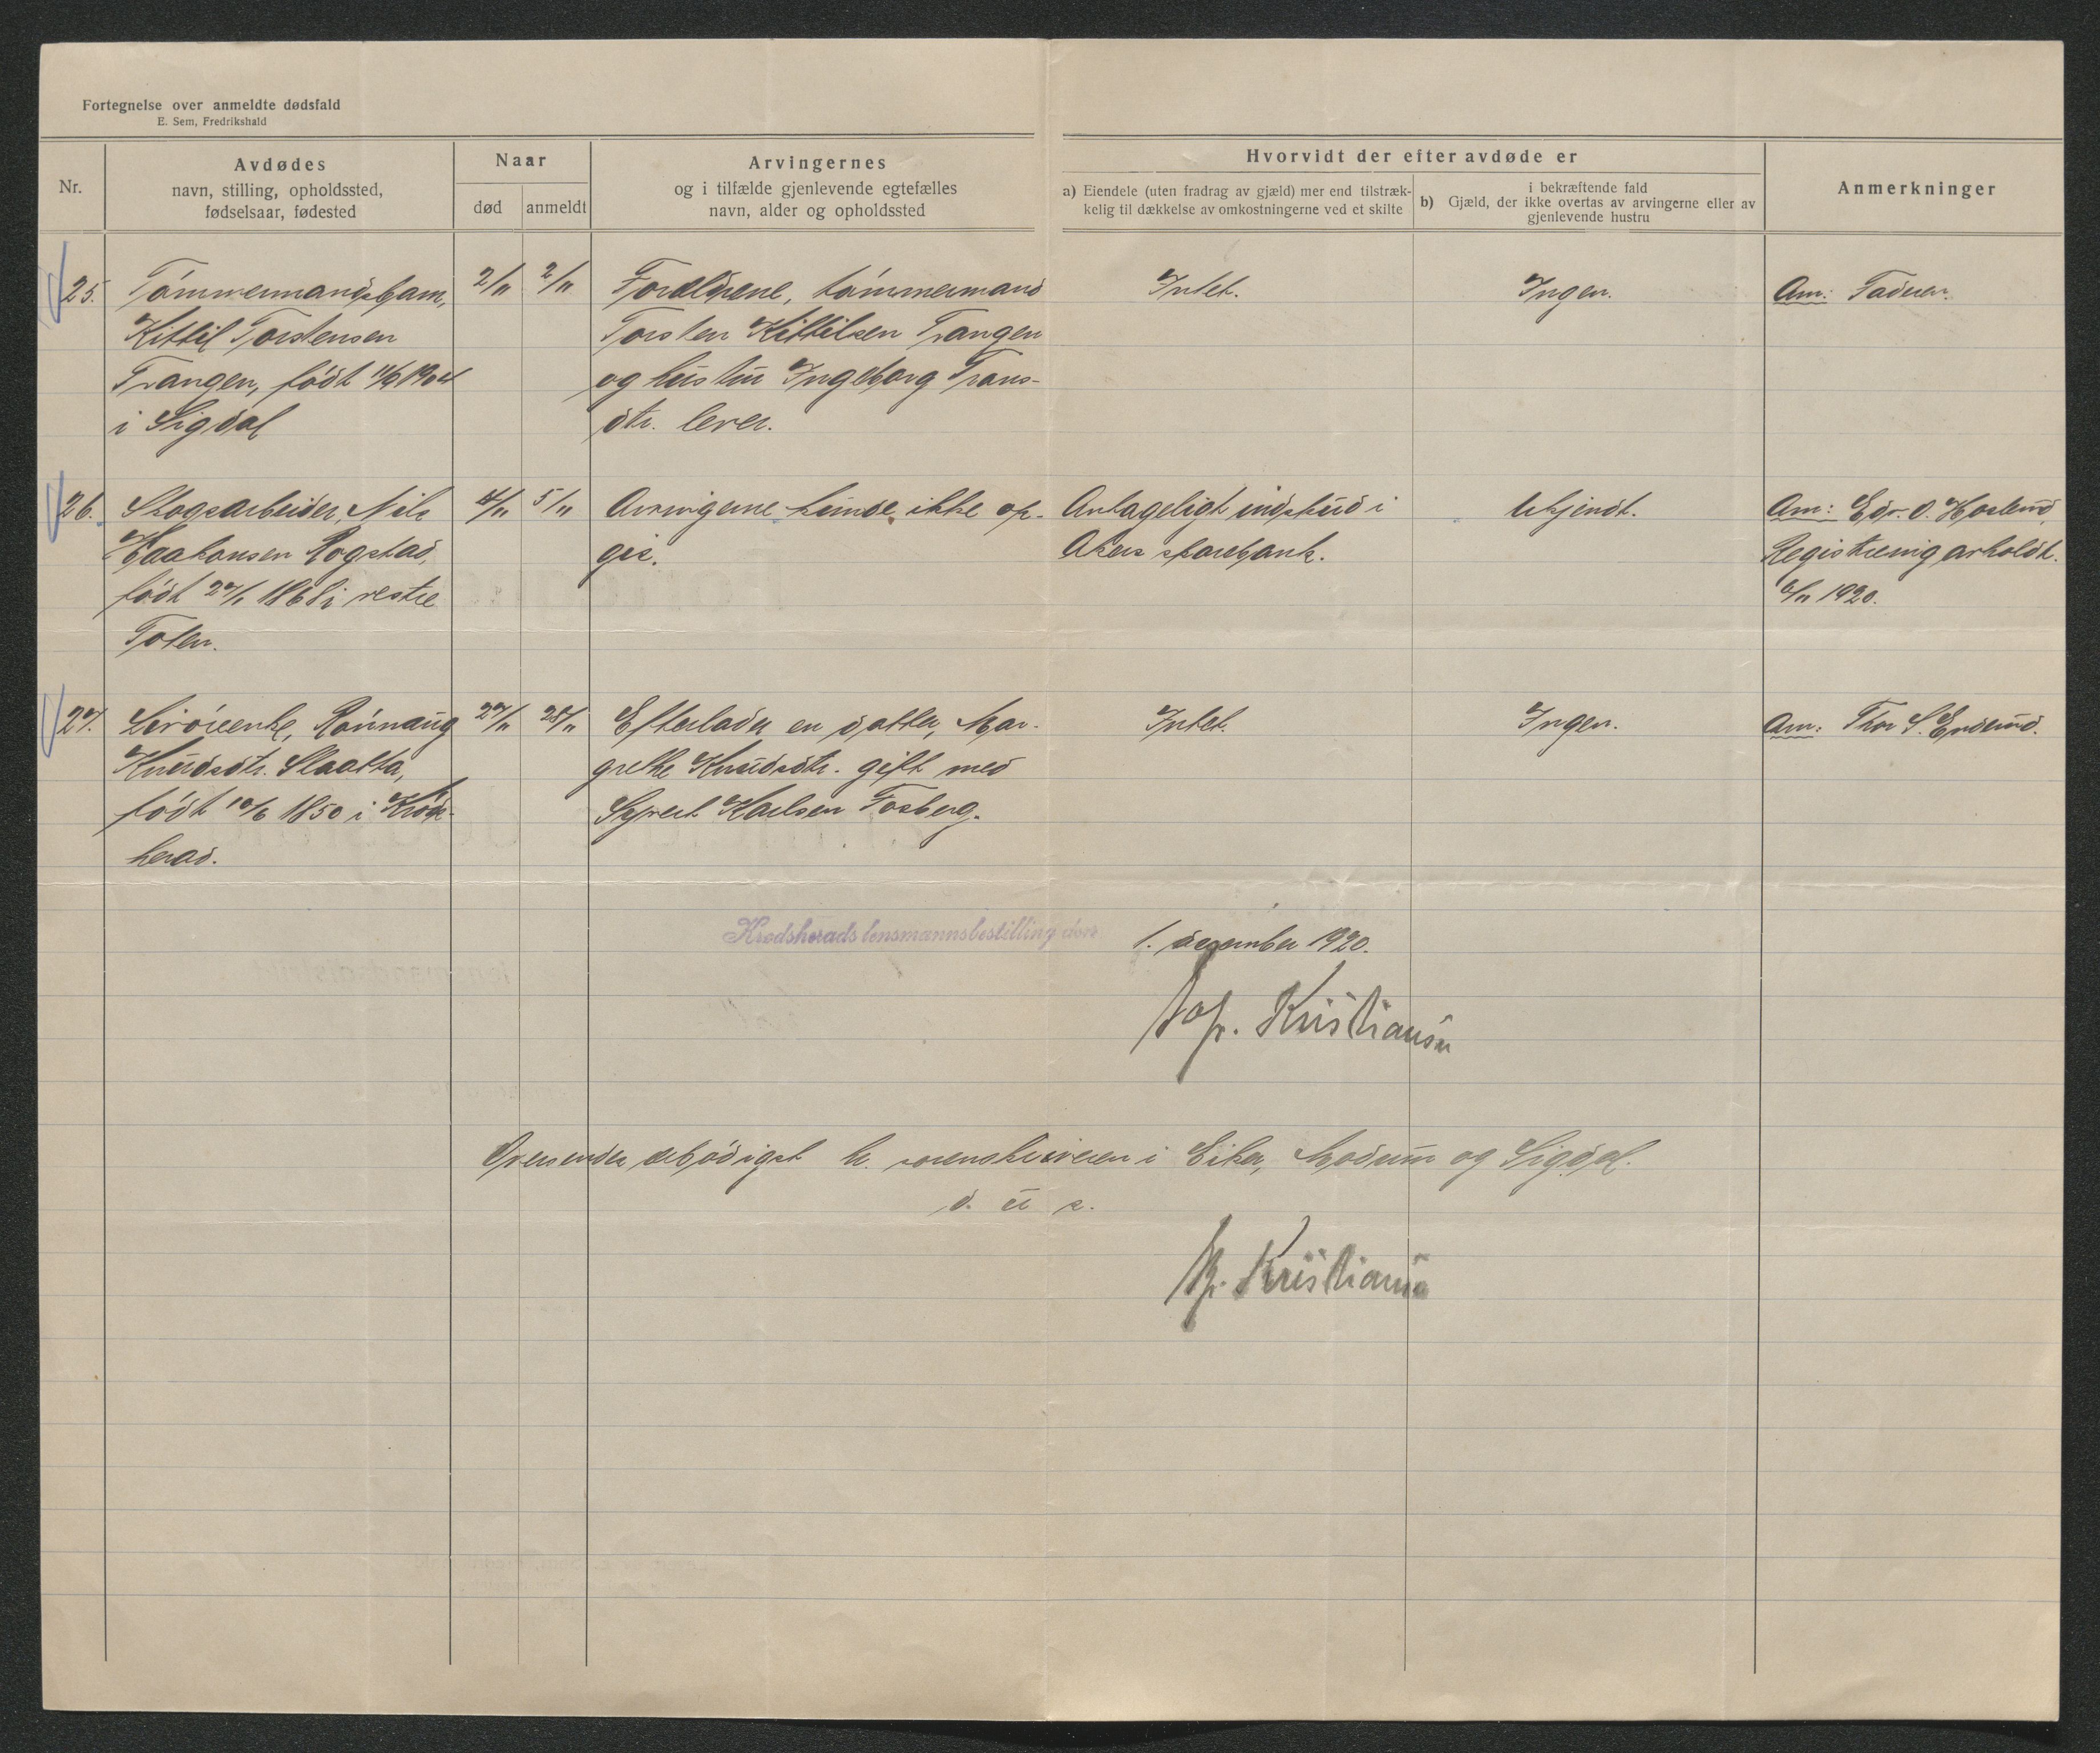 Fortegnelse over anmeldte dødsfald
E. Sem, Fredrikshald
Nr.
Avdødes
navn, stilling, opholdssted,
fødselsaar, fødested
Naar
død
anmeldt
Arvingernes
og i tilfælde gjenlevende egtefælles
navn, alder og opholdssted
Hvorvidt der efter avdøde er
a) Eiendele (uten fradrag av gjæld) mer end tilstræk-
kelig til dækkelse av omkostningerne ved et skifte
b) i bekræftende fald
Gjæld, der ikke overtas av arvingerne eller av
gjenlevende hustru
Anmerkninger
25.
Tømmermandsbarn,
Kittil Torstensen
Trangen, født 1904
i Sigdal
2/11
2/11
Forældrene, tømmermand
Torsten Kittilsen Trangen
og hustru Ingeborg Frans-
dtr. lever.
Intet.
Ingen.
Am: Faderen.
26.
Skogsarbeider, Nils
Haakonsen Rogstad,
født 27/1 1868 i vestre
Toten.
4/11
5/11
Arvingerne kunde ikke op-
gis.
Antageligt indskud i
Akers sparebank.
Ukjendt.
Am: Edv. O. Hovlund,
Registrering avholdt.
6/11 1920.
27.
Livøreenke, Rønnaug
Knudsdtr. Slaatta,
født 10/6 1850 i Krøds-
herad.
27/11
28/11
Efterlader en datter, Mar-
grethe Knudsdtr. gift med
Syvert Karlsen Fosberg.
Intet.
Ingen.
Am: Thor S. Enderud.
Krødsherads lensmannsbestilling den
1. december 1920.
Kristiansen
Oversendes ærbødigst hr. sorenskriveren i Eiker, Modum og Sigdal.
d. u s.
Kristiansen